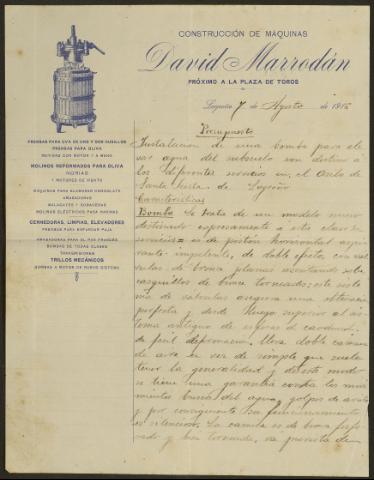 CONSTRUCCIÓN DE MÁQUINAS
David Marrodán
PRÓXIMO A LA PLAZA DE TOROS
Logroño 7 de Agosto de 1915
PRENSAS PARA UVA DE UNO Y DOS HUSILLOS
PRENSAS PARA OLIVA
MOVIDAS CON MOTOR Y A MANO
MOLINOS REFORMADOS PARA OLIVA
NORIAS
Y MOTORES DE VIENTO
MÁQUINAS PARA ELABORAR CHOCOLATE
AMASADORAS
MALAXTES Y SOBADERAS
MOLINOS ELÉCTRICOS PARA HARINAS
CERNEDORAS, LIMPIAS, ELEVADORES
PRENSAS PARA EMPACAR PAJA
AMASADORAS PARA EL PAN FRANCÉS
BOMBAS DE TODAS CLASES
TRANSMISIONES
TRILLOS MECÁNICOS
BOMBAS A MOTOR DE NUEVO SISTEMA
Presupuesto
Instalación de una bomba para ele
var agua del subsuelo con destino á
los diferentes servicios en el Asilo de
Santa Justa de Logroño
Características
Bomba. Se trata de un modelo nuevo
destinado expresamente á esta clase de
servicios = es de pistón horizontal aspi
rante-impelente, de doble efecto con val
vulas de bronce planas asentando sobre
casquillos de bronce torneados; este siste
ma de valvulas asegura una obturación
perfecta y desde luego superior al sis
tema antiguo de esferas de cauchouc
de fácil deformación. Lleva doble cámara
de aire en vez de simple que suele
tener la generalidad y de este modo
se tiene una garantía contra los mo
vimientos bruscos del agua, golpes de ariete
y por consiguiente su funcionamiento
es silencioso. La camisa es de bronce
y bien torneada, va provista de